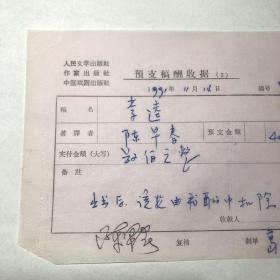 人民文学出版社
作家出版社
中国戏剧出版社
预支稿酬收据(2)
1991年11月18日 编
稿名 李逵
著译者 陈早春 预支金额 4
实付金额(大写) 肆佰元整
备注
出书后,该款由稿酬中扣除
收款人
复核 制单